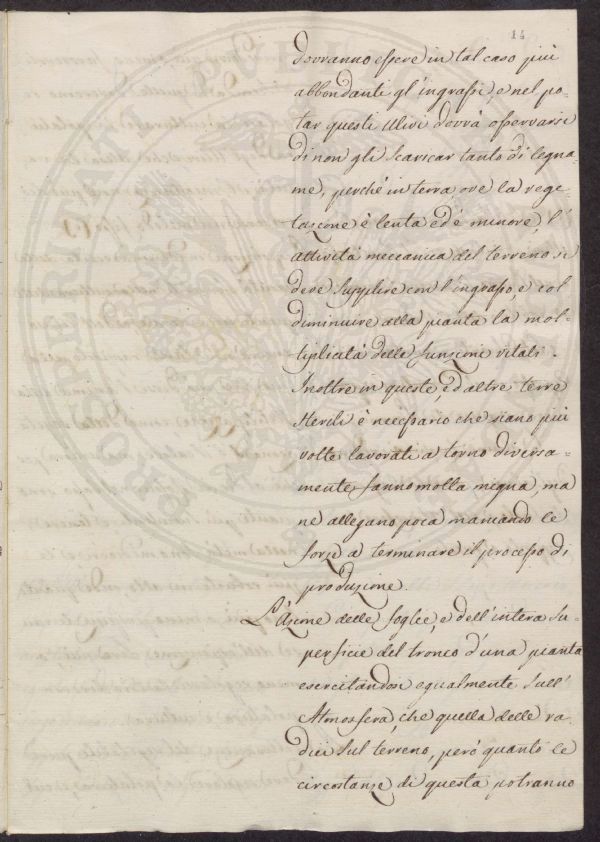 14
dovranno essere in tal caso più
abbondanti gl'ingrassi, e nel po-
tar questi Ulivi dovrà osservarsi
di non gli scaricar tanto di legna-
me, perché in terra, ove la vege-
tazione è lenta ed è minore, l'
attività meccanica del terreno si
deve supplire con l'ingrasso, e col
diminuire alla pianta la mol-
tiplicità delle funzioni vitali.
Inoltre in queste, ed altre terre
sterili è necessario che siano più
volte lavorati a torno diversa-
mente, fanno molla megna, ma
ne allegano poca mancando le
forze a terminare il processo di
produzione.
L'azione delle foglie, e dell'intera su-
perficie del tronco d'una pianta
esercitandosi egualmente sull'
Atmosfera, che quella delle ra-
dici sul terreno, però quanto le
circostanze di questa potranno